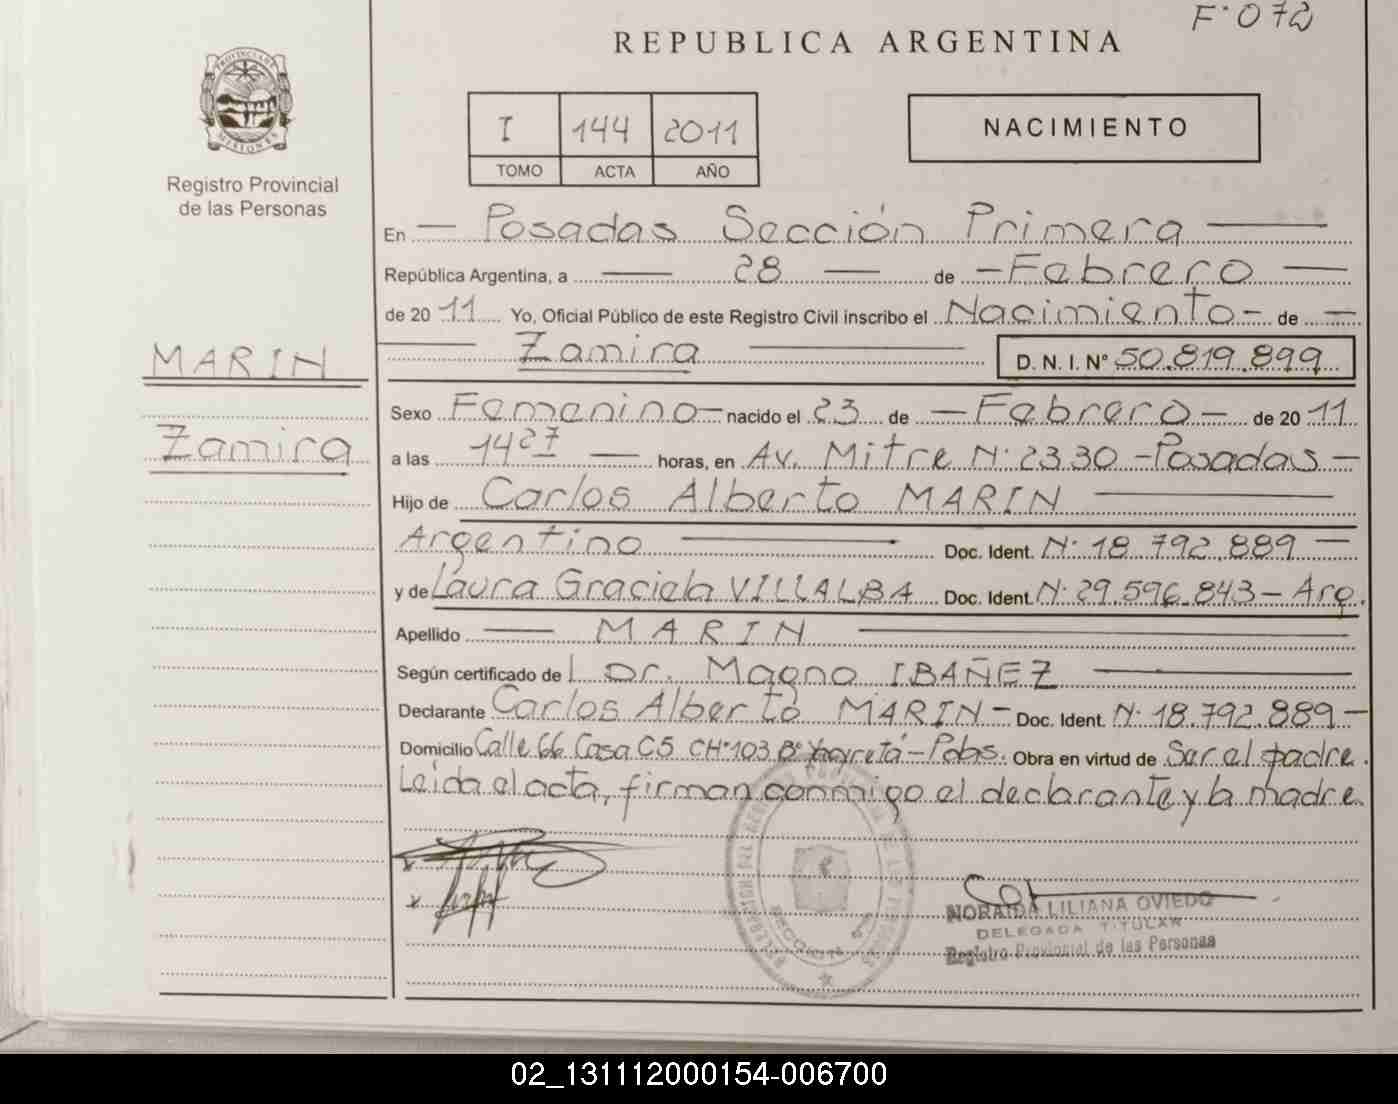 F. 072
REPUBLICA ARGENTINA
PROVINCIA DE MISIONES
I 144 2011
TOMO ACTA AÑO
NACIMIENTO
Registro Provincial
de las Personas
En — Posadas Sección Primera —
República Argentina, a — 28 — de — Febrero —
de 2011 Yo, Oficial Público de este Registro Civil inscribo el Nacimiento - de —
— Zamira — D. N. I. Nº 50.819.899
MARIN
Zamira
Sexo Femenino - nacido el 23 de - Febrero - de 2011
a las 14 27 — horas, en Av. Mitre Nº 2330 - Posadas -
Hijo de Carlos Alberto MARIN —
Argentino — Doc. Ident. Nº 18.792.889 —
y de Laura Graciela VILLALBA Doc. Ident. Nº 29.596.843 - Arg.
Apellido — MARIN —
Según certificado de l Dr. Magno IBAÑEZ —
Declarante Carlos Alberto MARIN - Doc. Ident. Nº 18.792.889 -
Domicilio Calle 66 Casa C5 CHº 103 Bº Yacyretá - Pdas. Obra en virtud de Ser el padre.
Leida el acta, firman conmigo el declarante y la madre.
NORAIDA LILIANA OVIEDO
DELEGADA TITULAR
Registro Provincial de las Personas
02_131112000154-006700